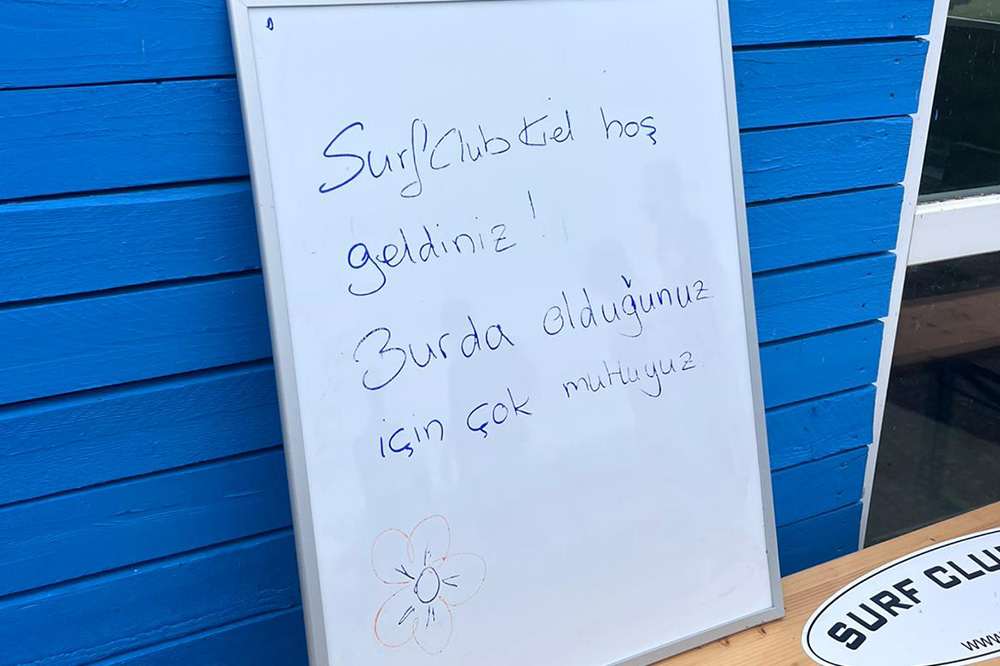 Surf Club Kiel hoş
geldiniz!
Burda olduğunuz
için çok mutluyuz
SURF CLU
www.